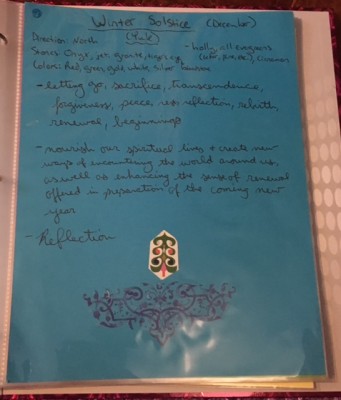 Winter Solstice (December)
(Yule)
Direction: North
- holly, all evergreens
Stones: Onyx, jet, granite,
(fir, pine, etc.), Cinnamon
Colors: Red, green, gold, white, silver
- letting go, sacrifice, transcendence,
forgiveness, peace, reflection, rebirth,
renewal, beginnings
- nourish our spiritual lives + create new
ways of encountering the world around us,
as well as enhancing the sense of renewal
offered in preparation of the coming new
year
- Reflection